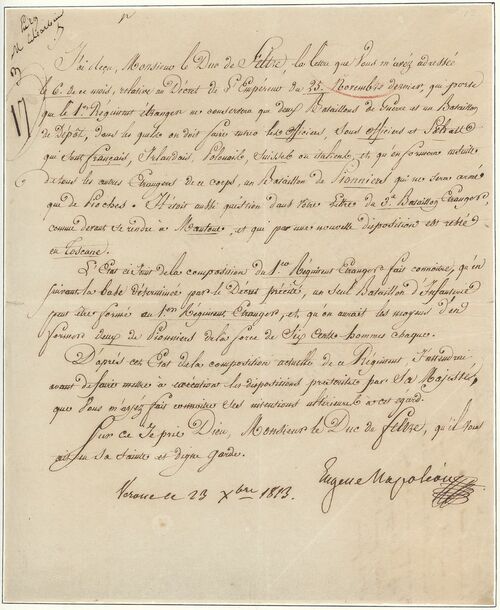 J'ai reçu, Monsieur le Duc de Feltre, la lettre que Vous m'avez adressée
le 6. de ce mois, relative au Décret de l'Empereur du 25. Novembre dernier, qui porte
que le 1er Régiment étranger ne conservera que deux Bataillons de Guerre et un Bataillon
de Dépôt, dans les quels on doit faire entrer les Officiers, Sous officiers et Soldats
qui sont français, Irlandais, Polonais, Suisses ou italiens, et, qu'on formera ensuite
de tous les autres Etrangers de ce corps, un Bataillon de Pionniers qui ne sera armé
que de Pioches. Il était aussi question dans Votre Lettre du 3e Bataillon Etranger,
comme devant se rendre à Mantoue, et qui par une nouvelle disposition est resté
en Toscane.
L'Etat ci joint de la composition du 1er Régiment Etranger fait connaitre, qu'en
suivant la base déterminée par le Décret précité, un seul Bataillon d'Infanterie
peut être formé au 1er Régiment Etranger, et, qu'on aurait les moyens d'en
former deux de Pionniers de la force de Six Cents hommes chaque.
D'après cet Etat de la composition actuelle de ce Régiment J'attendrai
avant de faire mettre à exécution les dispositions prescrites par Sa Majesté,
que Vous m'ayez fait connaitre Ses intentions ultérieures à cet égard.
Sur ce Je prie Dieu, Monsieur le Duc de Feltre, qu'il Vous
ait en sa sainte et digne garde.
Verone ce 23 Xbre 1813.
Eugene Napoléon